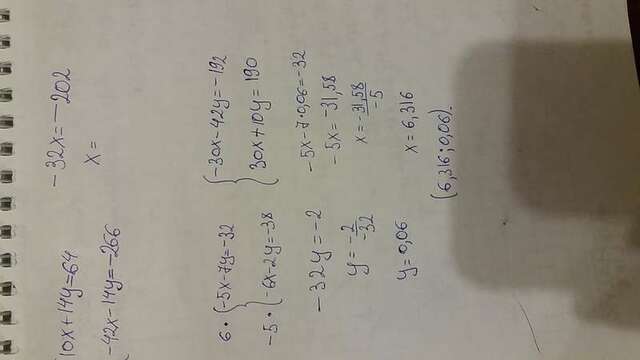 10x+14y=64
-42x-14y=-266
-32x=-202
x=
6· {-5x-7y=-32
-5· {-6x-2y=-38
{-30x-42y=-192
30x+10y=190
-32y=-2
y=-2/-32
y=0,06
-5x-7·0,06=-32
-5x=-31,58
x=-31,58/-5
x=6,316
(6,316;0,06).